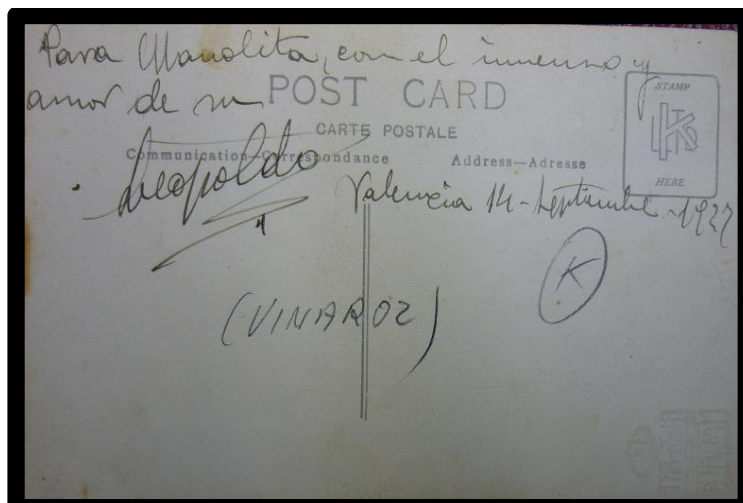 Para Manolita, con el inmenso y
amor de su
POST CARD
CARTE POSTALE
Communication—Correspondance
Address—Adresse
STAMP
HERE
Leopoldo
Valencia 14-Septiembre-1927
K
(VINAROZ)